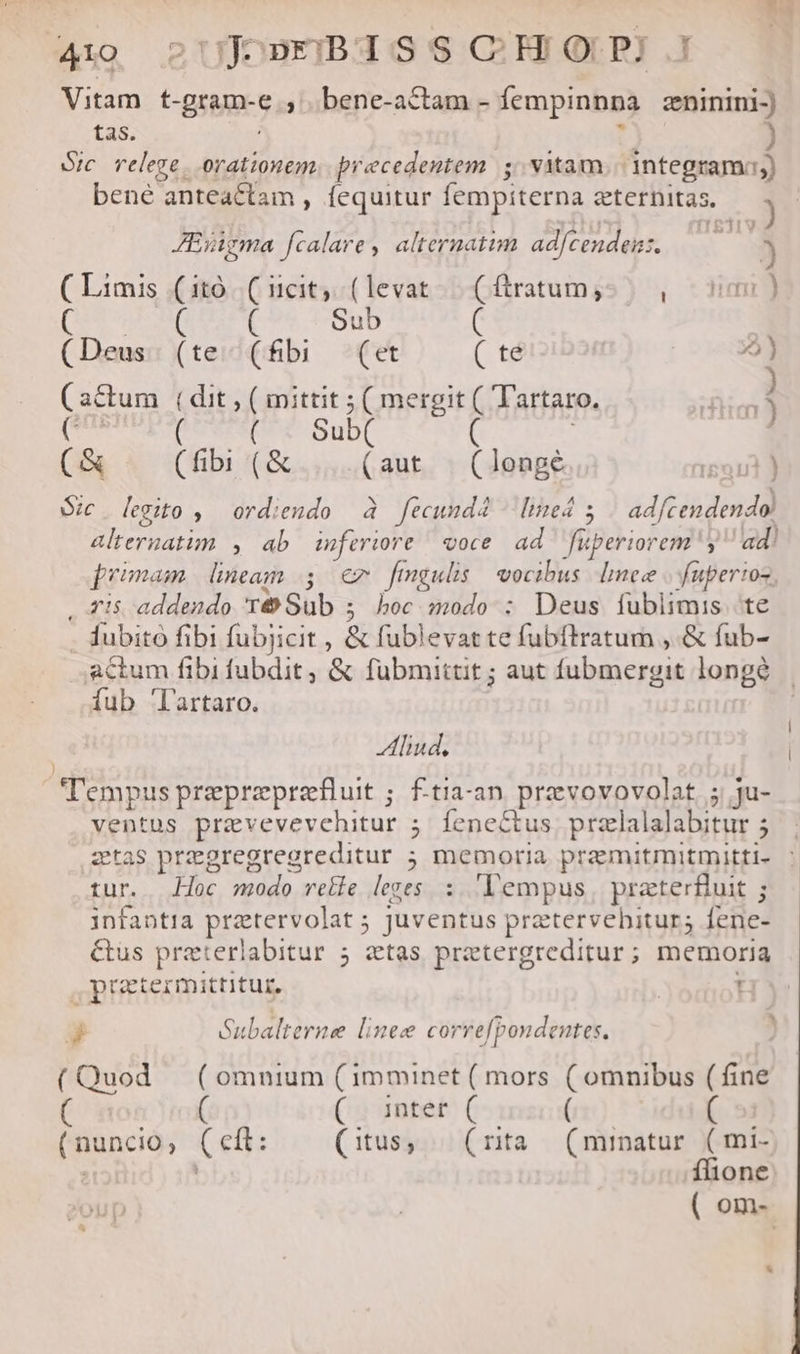 410 JO. EPISCOPI
Vitam t-gram-e, bene-actam - ſempinnna æninini-
tas.
Sic relege orationem præcedentem; vitam integram,
bené anteactam, ſequitur ſempiterna æternitas.
Ænigma ſcalare, alternatim adſcendens.
(Limis (itò (iicit, (levat (ſtratum,
( ( ( Sub (
(Deus (te (ſibi (et ( té
(actum (dit, (mittit; (mergit ( Tartaro.
( ( ( Sub( (
(& (ſibi (& (aut (longé
Sic legito, ordiendo à ſecundâ lineâ; adſcendendo
alternatim, ab inferiore voce ad ſuperiorem, ad
primam lineam; & ſingulis vocibus lineæ ſuperio-
ris addendo τὸ Sub; hoc modo: Deus ſublimis te
ſubitò ſibi ſubjicit, & ſublevat te ſubſtratum, & ſub-
actum ſibi ſubdit, & ſubmittit; aut ſubmergit longè
ſub Tartaro.
Aliud.
Tempus præpræpræfluit; f-tia-an prævovovolat; ju-
ventus prævevevehitur; ſenectus prælalalabitur;
ætas prægregregreditur; memoria præmitmitmitti-
tur. Hoc modo recte leges: Tempus præterfluit;
infantia prætervolat; juventus prætervehitur; ſene-
ctus præterlabitur; ætas prætergreditur; memoria
prætermittitur.
Subalternæ lineæ correſpondentes.
(Quod (omnium (imminet (mors (omnibus (ſine
( ( ( inter ( ( (
(nuncio, (eſt: (itus, (rita (minatur (mi-
ſſione
( om-